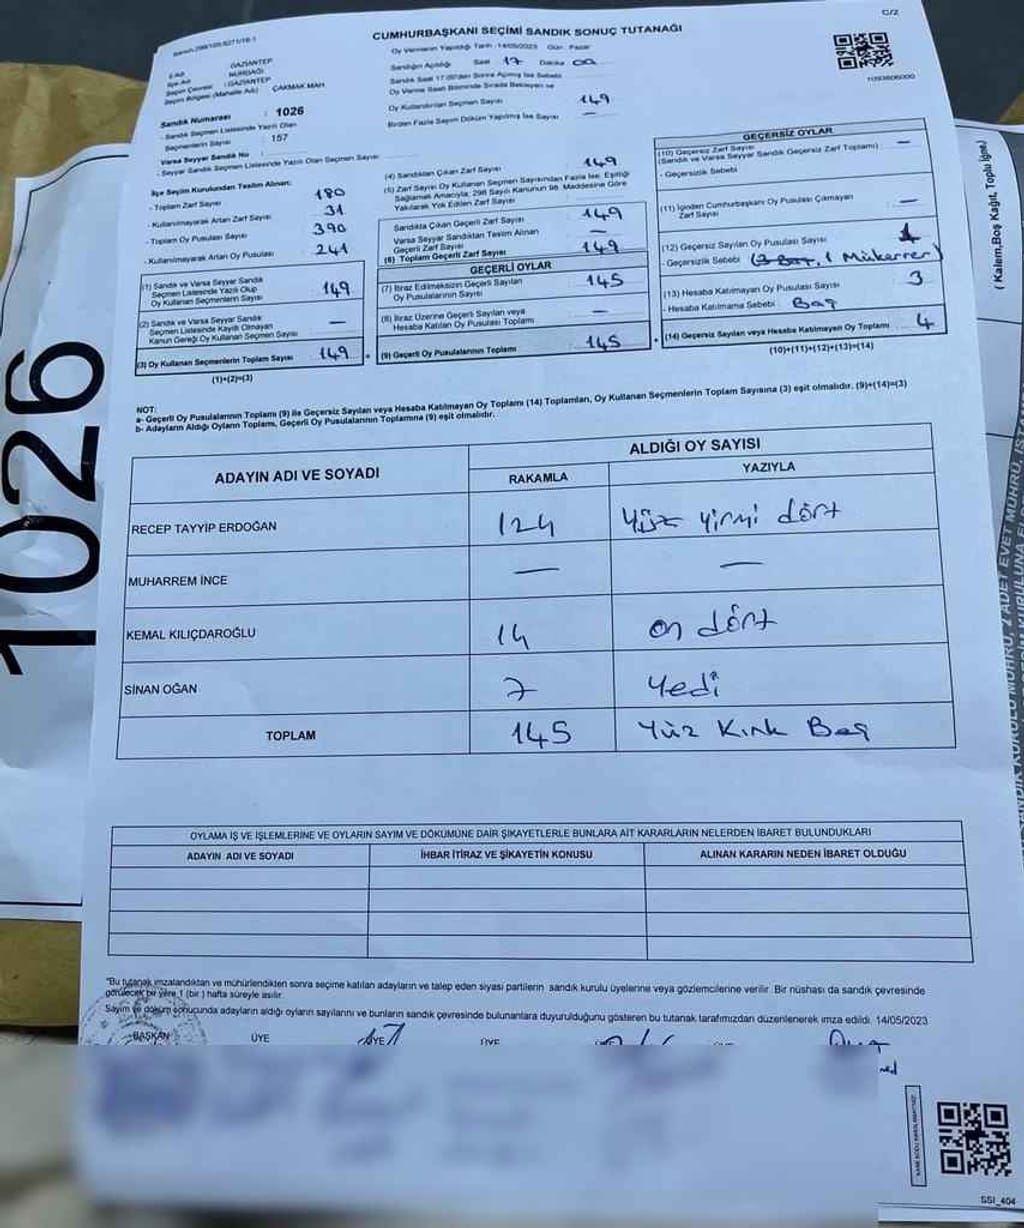 C/2
CUMHURBAŞKANI SEÇİMİ SANDIK SONUÇ TUTANAĞI
Oy Vermenin Yapıldığı Tarih :14/05/2023 Gün : Pazar
Sandığın Açıldığı Saat 17 Dakika 00
Sandık Saat 17:00'den Sonra Açılmış İse Sebebi
Oy Verme Saati Bitiminde Sırada Bekleyen ve
Oy Kullandırılan Seçmen Sayısı 149
Birden Fazla Sayım Döküm Yapılmış İse Sayısı —
1093606000
İl Adı GAZİANTEP
İlçe Adı NURDAĞI
Seçim Çevresi : GAZİANTEP
Seçim Bölgesi (Mahalle Adı) ÇAKMAK MAH.
Sandık Numarası : 1026
- Sandık Seçmen Listesinde Yazılı Olan
Seçmenlerin Sayısı : 157
Varsa Seyyar Sandık No :
- Seyyar Sandık Seçmen Listesinde Yazılı Olan Seçmen Sayısı
İlçe Seçim Kurulundan Teslim Alınan:
- Toplam Zarf Sayısı 180
- Kullanılmayarak Artan Zarf Sayısı 31
- Toplam Oy Pusulası Sayısı 390
- Kullanılmayarak Artan Oy Pusulası 241
(1) Sandık ve Varsa Seyyar Sandık
Seçmen Listesinde Yazılı Olup
Oy Kullanan Seçmenlerin Sayısı 149
(2) Sandık ve Varsa Seyyar Sandık
Seçmen Listesinde Kayıtlı Olmayan
Kanun Gereği Oy Kullanan Seçmen Sayısı —
(3) Oy Kullanan Seçmenlerin Toplam Sayısı 149
(1)+(2)=(3)
(4) Sandıktan Çıkan Zarf Sayısı 149
(5) Zarf Sayısı Oy Kullanan Seçmen Sayısından Fazla İse, Eşitliği
Sağlamak Amacıyla, 298 Sayılı Kanunun 98. Maddesine Göre
Yakılarak Yok Edilen Zarf Sayısı
Sandıkta Çıkan Geçerli Zarf Sayısı 149
Varsa Seyyar Sandıktan Teslim Alınan
Geçerli Zarf Sayısı —
(6) Toplam Geçerli Zarf Sayısı 149
GEÇERLİ OYLAR
(7) İtiraz Edilmeksizin Geçerli Sayılan
Oy Pusulalarının Sayısı 145
(8) İtiraz Üzerine Geçerli Sayılan veya
Hesaba Katılan Oy Pusulası Toplamı —
(9) Geçerli Oy Pusulalarının Toplamı 145
GEÇERSİZ OYLAR
(10) Geçersiz Zarf Sayısı
(Sandık ve Varsa Seyyar Sandık Geçersiz Zarf Toplamı) —
- Geçersizlik Sebebi
(11) İçinden Cumhurbaşkanı Oy Pusulası Çıkmayan
Zarf Sayısı —
(12) Geçersiz Sayılan Oy Pusulası Sayısı 1
- Geçersizlik Sebebi (3 Boş, 1 Mükerrer)
(13) Hesaba Katılmayan Oy Pusulası Sayısı 3
- Hesaba Katılmama Sebebi : Boş
(14) Geçersiz Sayılan veya Hesaba Katılmayan Oy Toplamı 4
(10)+(11)+(12)+(13)=(14)
NOT:
a- Geçerli Oy Pusulalarının Toplamı (9) ile Geçersiz Sayılan veya Hesaba Katılmayan Oy Toplamı (14) Toplamları, Oy Kullanan Seçmenlerin Toplam Sayısına (3) eşit olmalıdır. (9)+(14)=(3)
b- Adayların Aldığı Oyların Toplamı, Geçerli Oy Pusulalarının Toplamına (9) eşit olmalıdır.
ADAYIN ADI VE SOYADI
ALDIĞI OY SAYISI
RAKAMLA YAZIYLA
RECEP TAYYİP ERDOĞAN 124 Yüz yirmi dört
MUHARREM İNCE — —
KEMAL KILIÇDAROĞLU 14 on dört
SİNAN OĞAN 7 Yedi
TOPLAM 145 Yüz Kırk Beş
OYLAMA İŞ VE İŞLEMLERİNE VE OYLARIN SAYIM VE DÖKÜMÜNE DAİR ŞİKAYETLERLE BUNLARA AİT KARARLARIN NELERDEN İBARET BULUNDUKLARI
ADAYIN ADI VE SOYADI İHBAR İTİRAZ VE ŞİKAYETİN KONUSU ALINAN KARARIN NEDEN İBARET OLDUĞU
"Bu tutanak imzalandıktan ve mühürlendikten sonra seçime katılan adayların ve talep eden siyasi partilerin sandık kurulu üyelerine veya gözlemcilerine verilir. Bir nüshası da sandık çevresinde
görülecek bir yere 1 (bir ) hafta süreyle asılır.
Sayım ve döküm sonucunda adayların aldığı oyların sayılarını ve bunların sandık çevresinde bulunanlara duyurulduğunu gösteren bu tutanak tarafımızdan düzenlenerek imza edildi. 14/05/2023
BAŞKAN ÜYE ÜYE ÜYE
SSI_404
1026
( Kalem,Boş Kağıt, Toplu İğne)